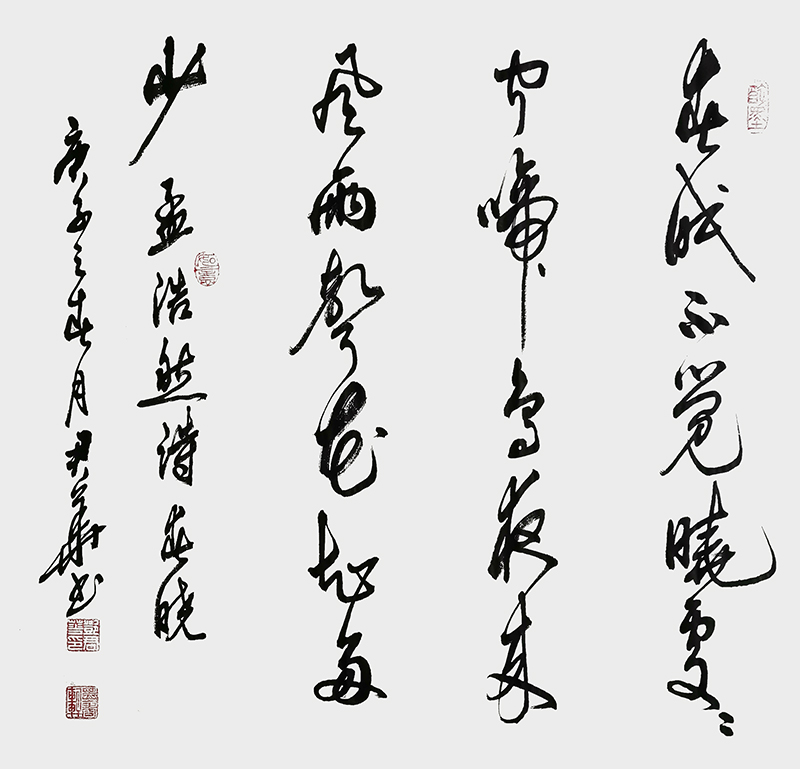 春眠不觉曉處〻
闻啼鸟夜来
风雨声花知多
少 孟浩然诗春晓
庚子之春月君華书